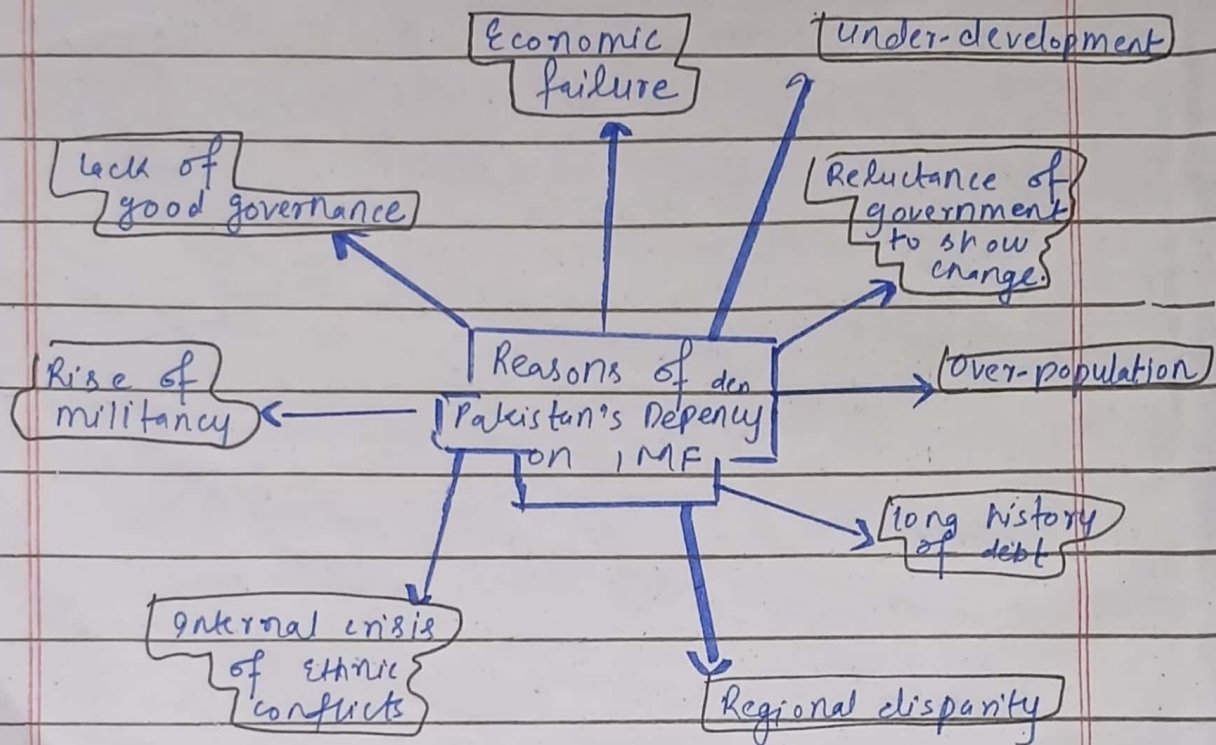 Economic
failure
Under-development
Lack of
good governance
Reluctance of
government
to show
change.
Reasons of den
Pakistan's Depency
on IMF
Rise of
militancy
Over-population
long history
of debt
Internal crisis
of Ethnic
conflicts
Regional disparity